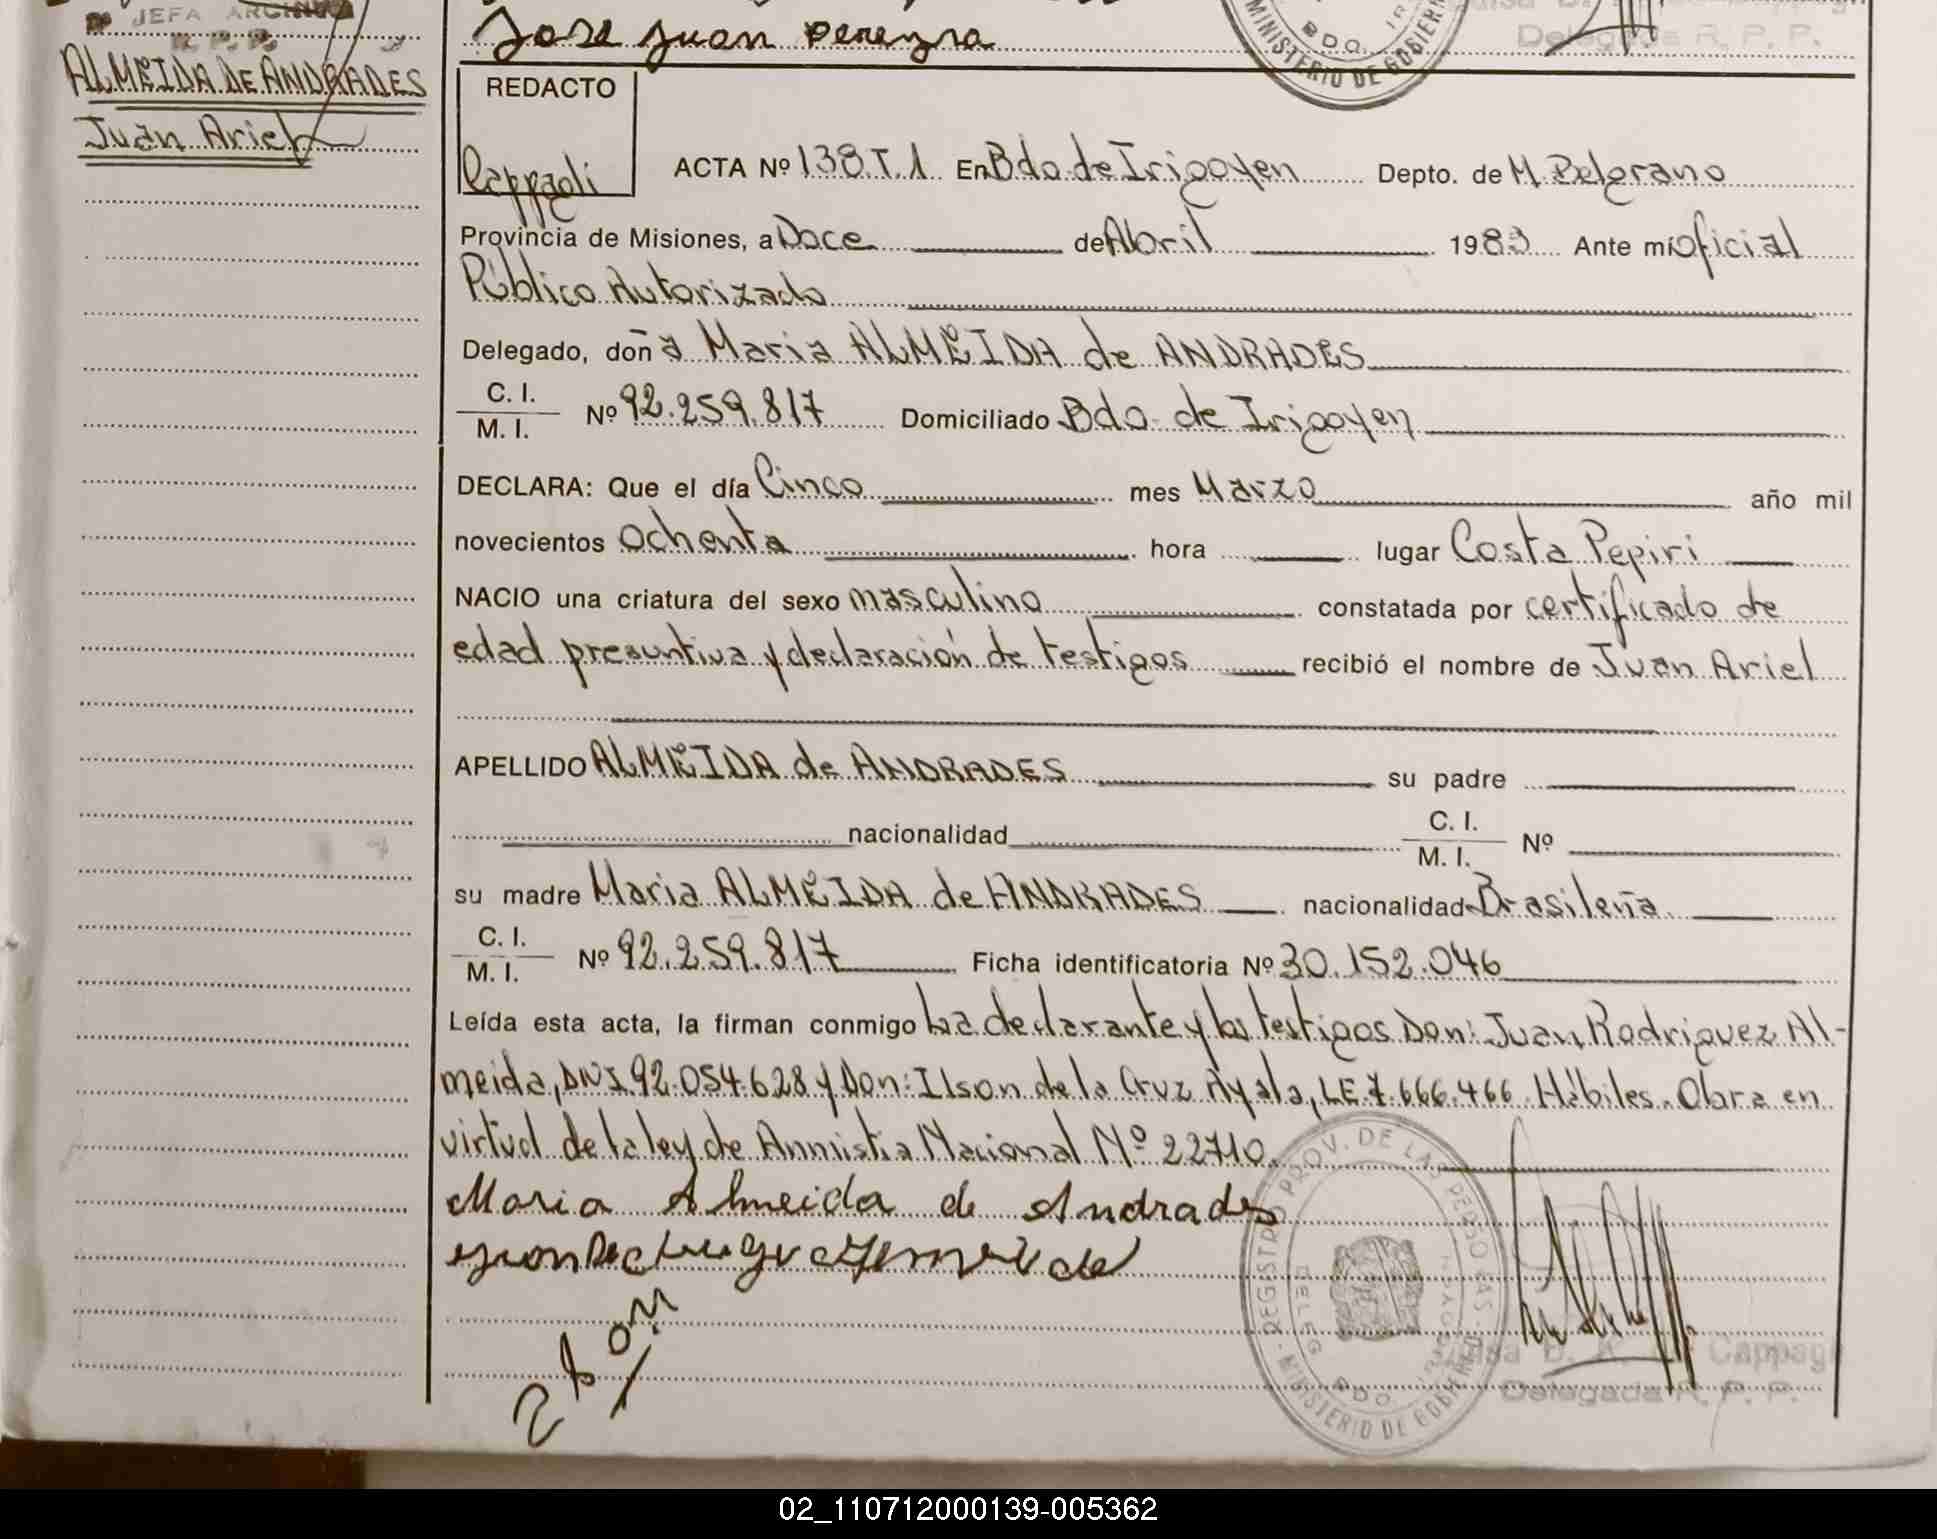 JEFA ARCHIVO
R. P. P.
Jose Juan Pereyra
MINISTERIO DE GOBIERN
BDO. IR
Delegada R. P. P.
ALMEIDA DE ANDRADES
Juan Ariel
REDACTO
Cappagli
ACTA Nº 138.T.1 En Bdo de Irigoyen Depto. de M. Belgrano
Provincia de Misiones, a Doce de Abril 1983 Ante mí Oficial
Público Autorizado
Delegado, doña Maria ALMEIDA de ANDRADES
C. I.
M. I. Nº 92.259.817 Domiciliado Bdo. de Irigoyen
DECLARA: Que el día Cinco mes Marzo año mil
novecientos ochenta hora lugar Costa Pepiri
NACIO una criatura del sexo masculino constatada por certificado de
edad presuntiva y declaración de testigos recibió el nombre de Juan Ariel
APELLIDO ALMEIDA de ANDRADES su padre
nacionalidad C. I.
M. I. Nº
su madre Maria ALMEIDA de ANDRADES nacionalidad Brasileña
C. I.
M. I. Nº 92.259.817 Ficha identificatoria Nº 30.152.046
Leída esta acta, la firman conmigo La declarante y los testigos Don: Juan Rodriguez Al-
meida, DNI.92.054.628 y Don: Ilson de la Cruz Ayala, LE.7.666.466. Hábiles. Obra en
virtud de la ley de Amnistia Nacional Nº 22710.
Maria Almeida de Andrades
REGISTRO PROV. DE LAS PERSONAS - MINISTERIO DE GOBIERNO
DELEG. BDO. IRIGOYEN
Cappagli
Delegada R. P. P.
02_110712000139-005362